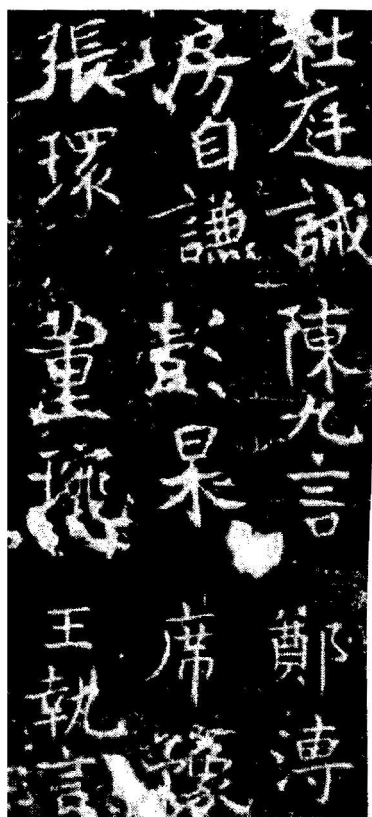 杜庭誡 陳九言 鄭
房自謙 彭杲 席豫
張環 董 王執言